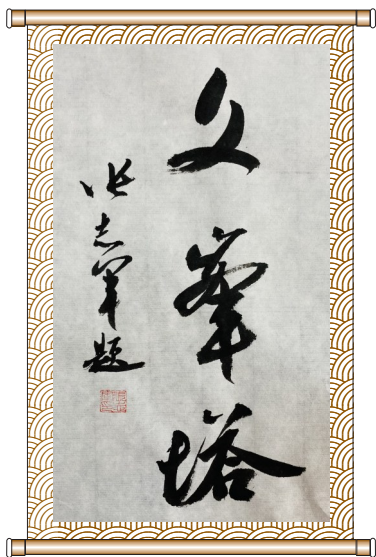 文峯塔
张志军题